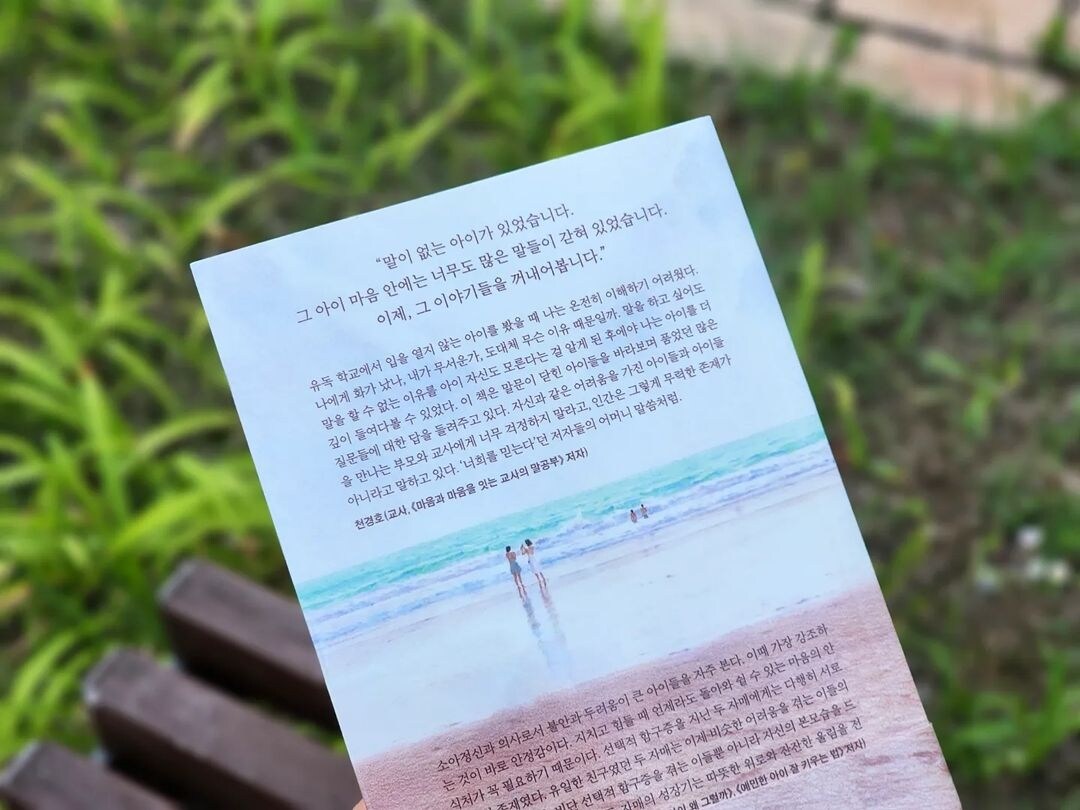 “말이 없는 아이가 있었습니다.
그 아이 마음 안에는 너무도 많은 말들이 갇혀 있었습니다.
이제, 그 이야기들을 꺼내어봅니다.”
유독 학교에서 입을 열지 않는 아이를 봤을 때 나는 온전히 이해하기 어려웠다.
나에게 화가 났나, 내가 무서운가, 도대체 무슨 이유 때문일까. 말을 하고 싶어도
말을 할 수 없는 이유를 아이 자신도 모른다는 걸 알게 된 후에야 나는 아이를 더
깊이 들여다볼 수 있었다. 이 책은 말문이 닫힌 아이들을 바라보며 품었던 많은
질문들에 대한 답을 들려주고 있다. 자신과 같은 어려움을 가진 아이들과 아이들
을 만나는 부모와 교사에게 너무 걱정하지 말라고, 인간은 그렇게 무력한 존재가
아니라고 말하고 있다. ‘너희를 믿는다’던 저자들의 어머니 말씀처럼.
천경호(교사, 《마음과 마음을 잇는 교사의 말공부》 저자)
소아정신과 의사로서 불안과 두려움이 큰 아이들을 자주 본다. 이때 가장 강조하
는 것이 바로 안정감이다. 지치고 힘들 때 언제라도 돌아와 쉴 수 있는 마음의 안
식처가 꼭 필요하기 때문이다. 선택적 함구증을 지닌 두 자매에게는 다행히 서로
존재였다. 유일한 친구였던 두 자매는 이제 비슷한 어려움을 겪는 이들의
선택적 함구증을 겪는 이들뿐 아니라 자신의 본모습을 드
자매의 성장기는 따뜻한 위로와 잔잔한 울림을 전
왜 그럴까》, 《예민한 아이 잘 키우는 법》 저자)